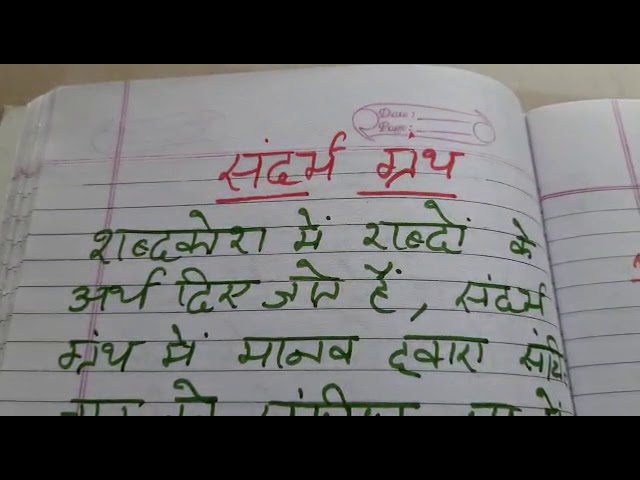 Date :
Page :
संदर्भ ग्रंथ
शब्दकोश में शब्दों के
अर्थ दिए जाते हैं, संदर्भ
ग्रंथ में मानव द्वारा